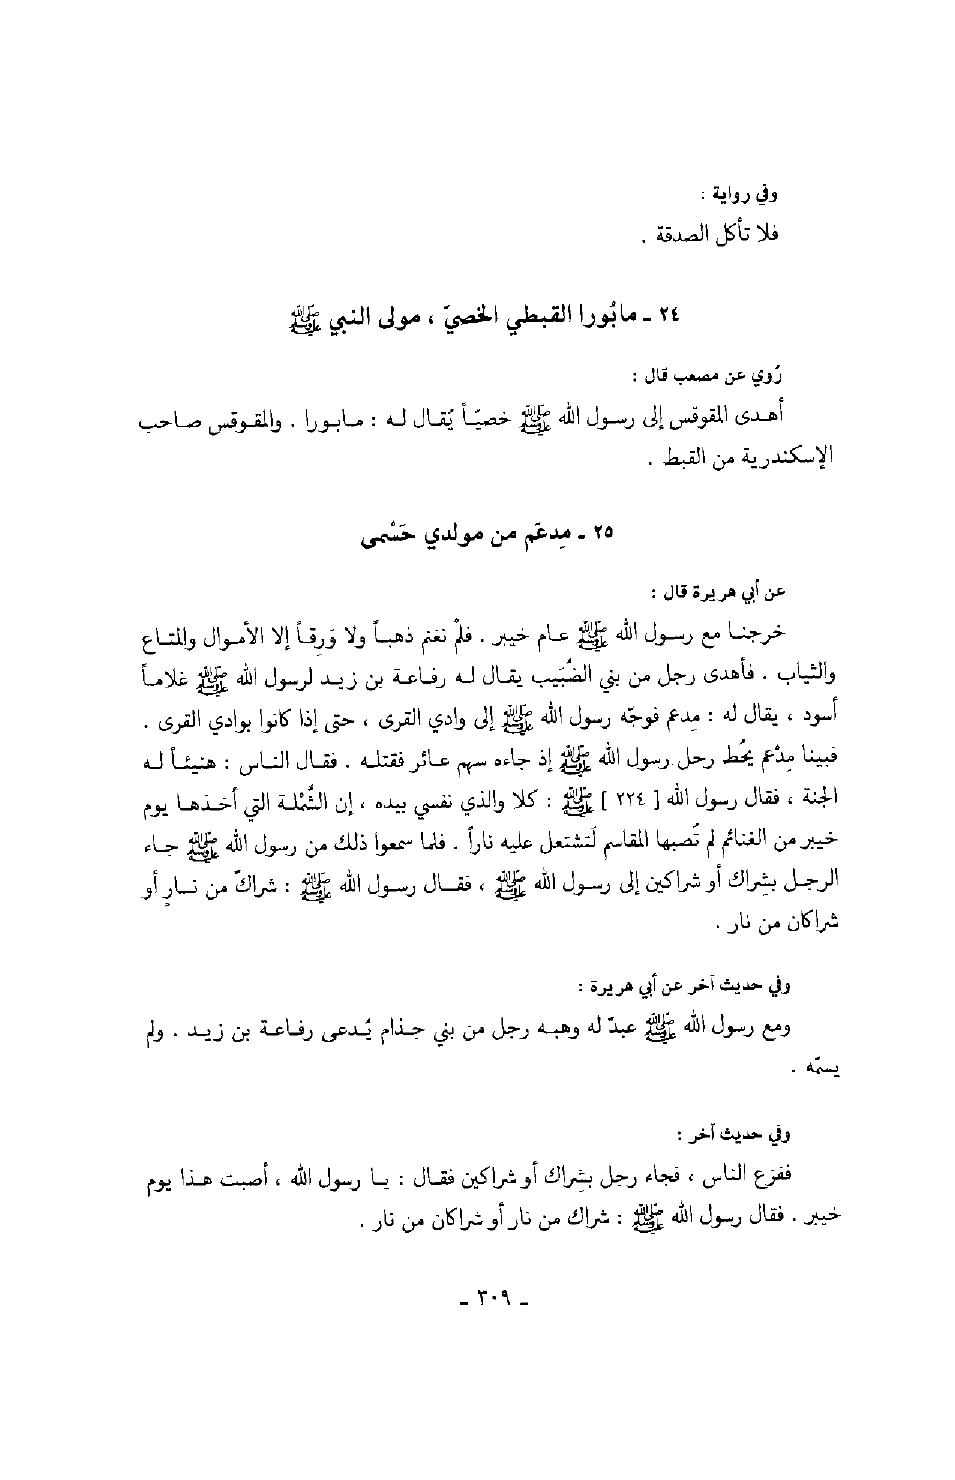 وفي رواية :
فلا تأكل الصدقة .
٢٤ ـ مابُورا القبطي الخصيّ ، مولى النبي ﷺ
رُوي عن مصعب قال :
أهدى المقوقس إلى رسول الله ﷺ خصيّاً يُقال له : مابورا . والمقوقس صاحب
الإسكندرية من القبط .
٢٥ ـ مِدعَم من مولدي حَسْمى
عن أبي هريرة قال :
خرجنا مع رسول الله ﷺ عام خيبر . فلمْ نغنم ذهباً ولا وَرِقاً إلا الأموال والمتاع
والثياب . فأهدى رجل من بني الضُّبَيب يقال له رفاعة بن زيد لرسول الله ﷺ غلاماً
أسود ، يقال له : مِدعم فوجّه رسول الله ﷺ إلى وادي القرى ، حتى إذا كانوا بوادي القرى .
فبينا مِدْعم يحُط رحل رسول الله ﷺ إذ جاءه سهم عائر فقتله . فقال الناس : هنيئاً له
الجنة ، فقال رسول الله [ ٢٢٤ ] ﷺ : كلا والذي نفسي بيده ، إن الشَّمْلة التي أخذها يوم
خيبر من الغنائم لم تُصبها المقاسم لَتشتعل عليه ناراً . فلما سمعوا ذلك من رسول الله ﷺ جاء
الرجل بشِراك أو شراكين إلى رسول الله ﷺ ، فقال رسول الله ﷺ : شراكٌ من نارٍ أو
شراكان من نار .
وفي حديث آخر عن أبي هريرة :
ومع رسول الله ﷺ عبدٌ له وهبه رجل من بني جذام يُدعى رفاعة بن زيد . ولم
يسمّه .
وفي حديث آخر :
ففزع الناس ، فجاء رجل بشِراك أو شراكين فقال : يا رسول الله ، أصبت هذا يوم
خيبر . فقال رسول الله ﷺ : شراك من نار أو شراكان من نار .
ـ ٣٠٩ ـ